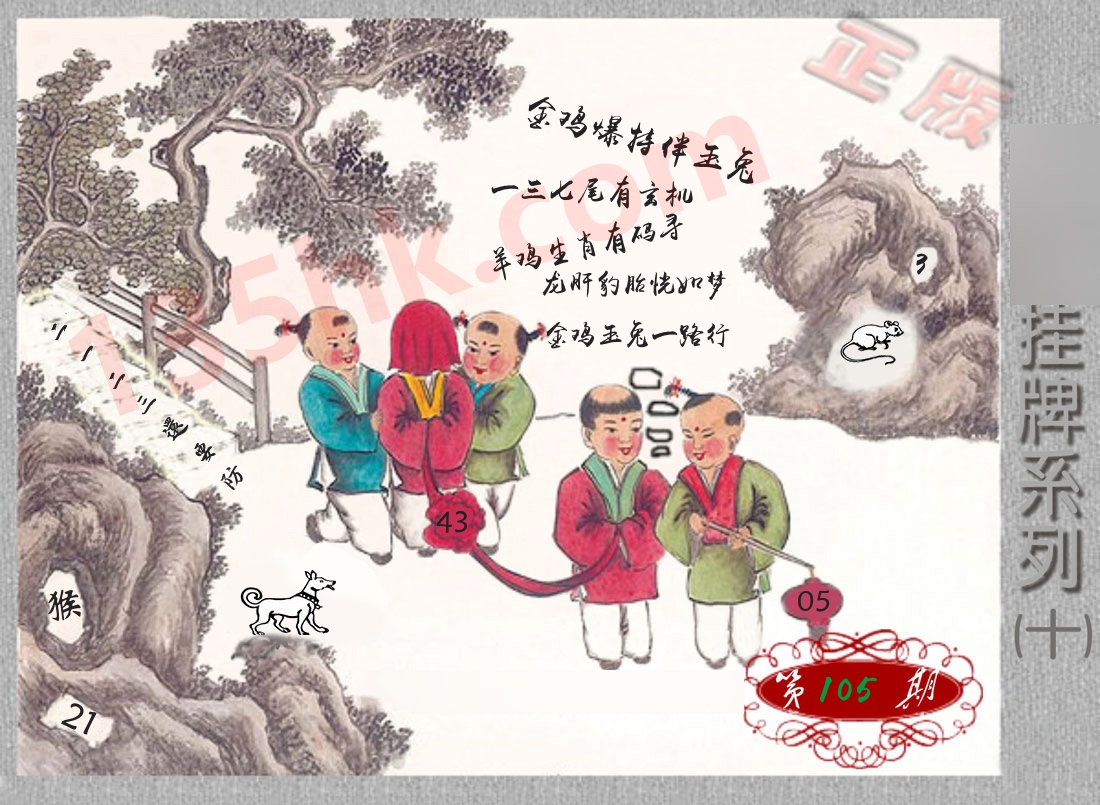 正版
金鸡爆特伴玉兔
一三七尾有玄机
羊鸡生肖有码寻
龙肝豹胎恍如梦
金鸡玉兔一路行
135hk.com
3
二一二三還要防
43
05
猴
21
第105期
挂牌系列(十)